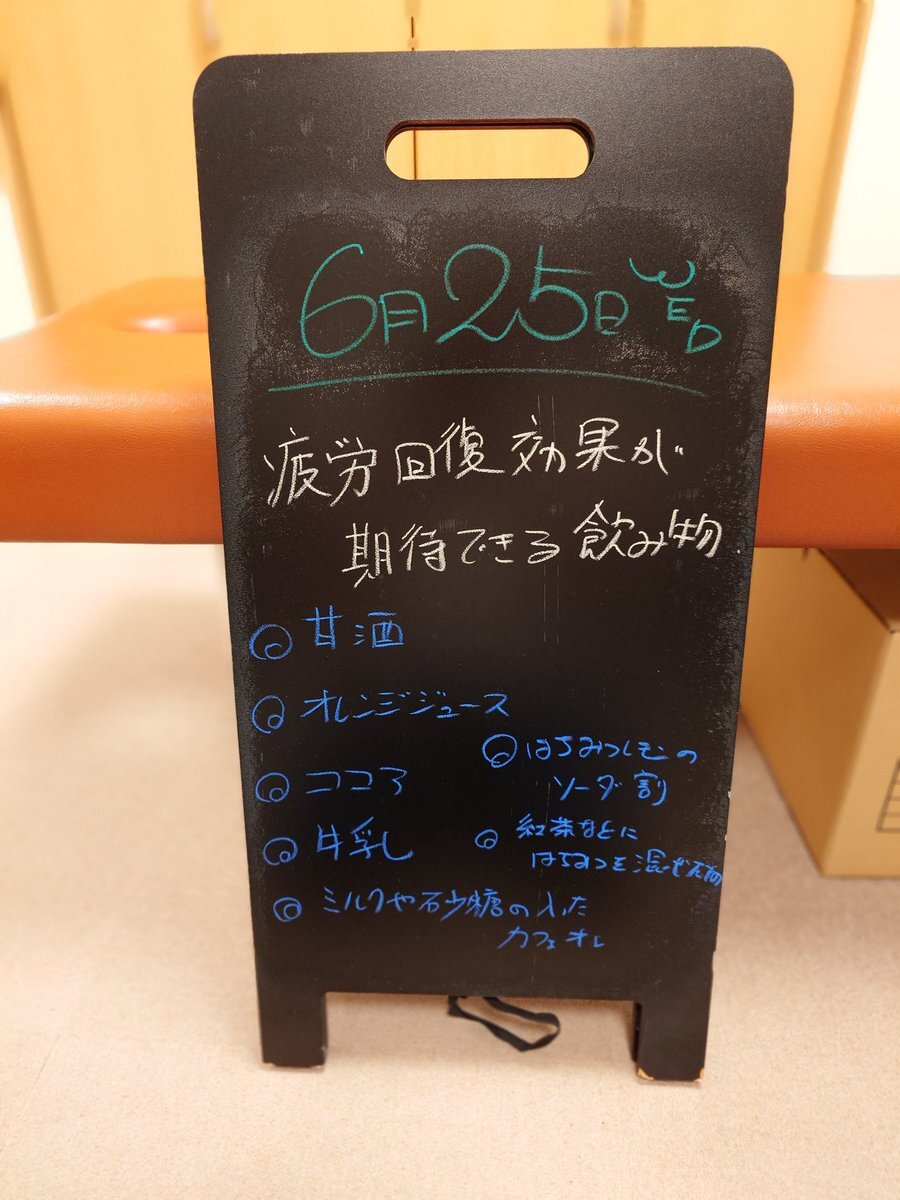 6月25日 WED
疲労回復効果が
期待できる飲み物
◎甘酒
◎オレンジジュース
◎ココア
◎牛乳
◎ミルクや砂糖の入った
カフェオレ
◎はちみつレモンの
ソーダ割
◎紅茶などに
はちみつを混ぜたもの